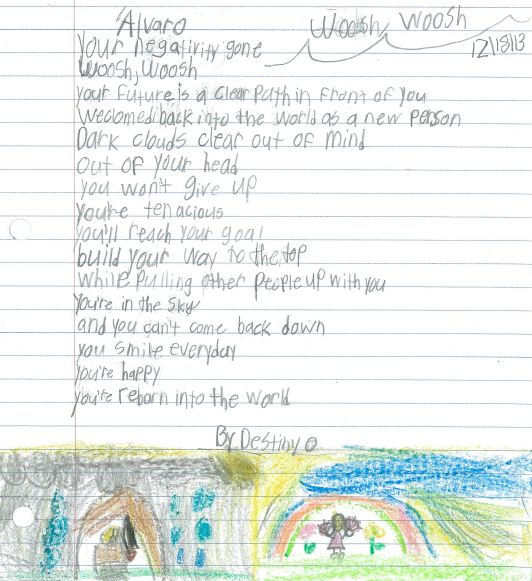 Alvaro
Woosh, Woosh
12/18/13
Your negativity gone
Woosh, Woosh
your future is a clear path in front of you
Weclomed back into the world as a new person
Dark clouds clear out of mind
out of your head
you won't give up
you're tenacious
you'll reach your goal
build your way to the top
while pulling other people up with you
you're in the sky
and you can't come back down
you smile everyday
you're happy
you're reborn into the world
By Destiny